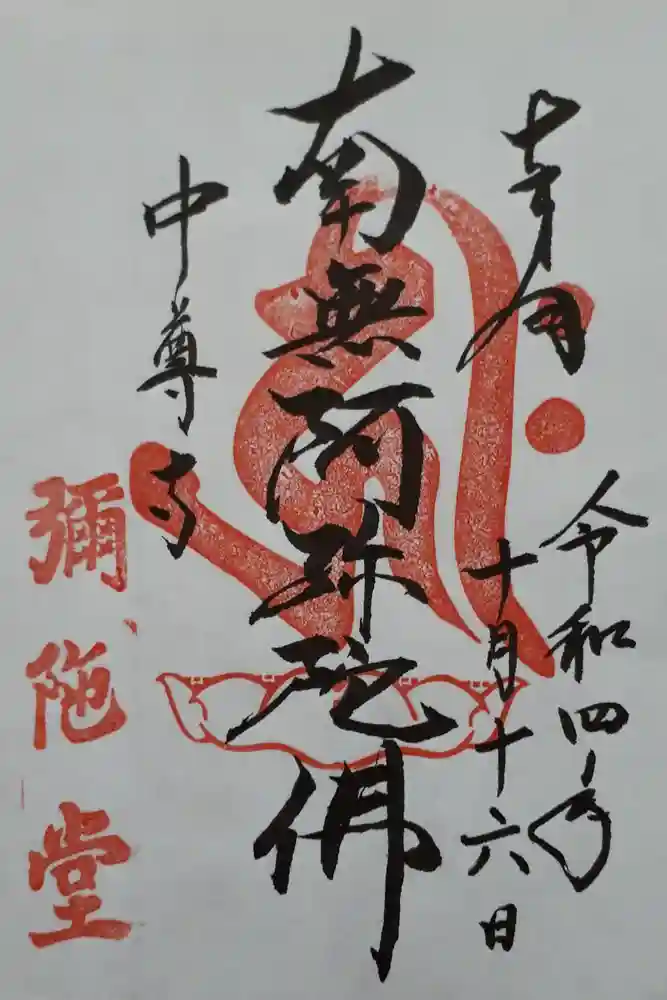 奉拝
令和四年
十月十六日
南無阿弥陀佛
中尊寺
彌陀堂